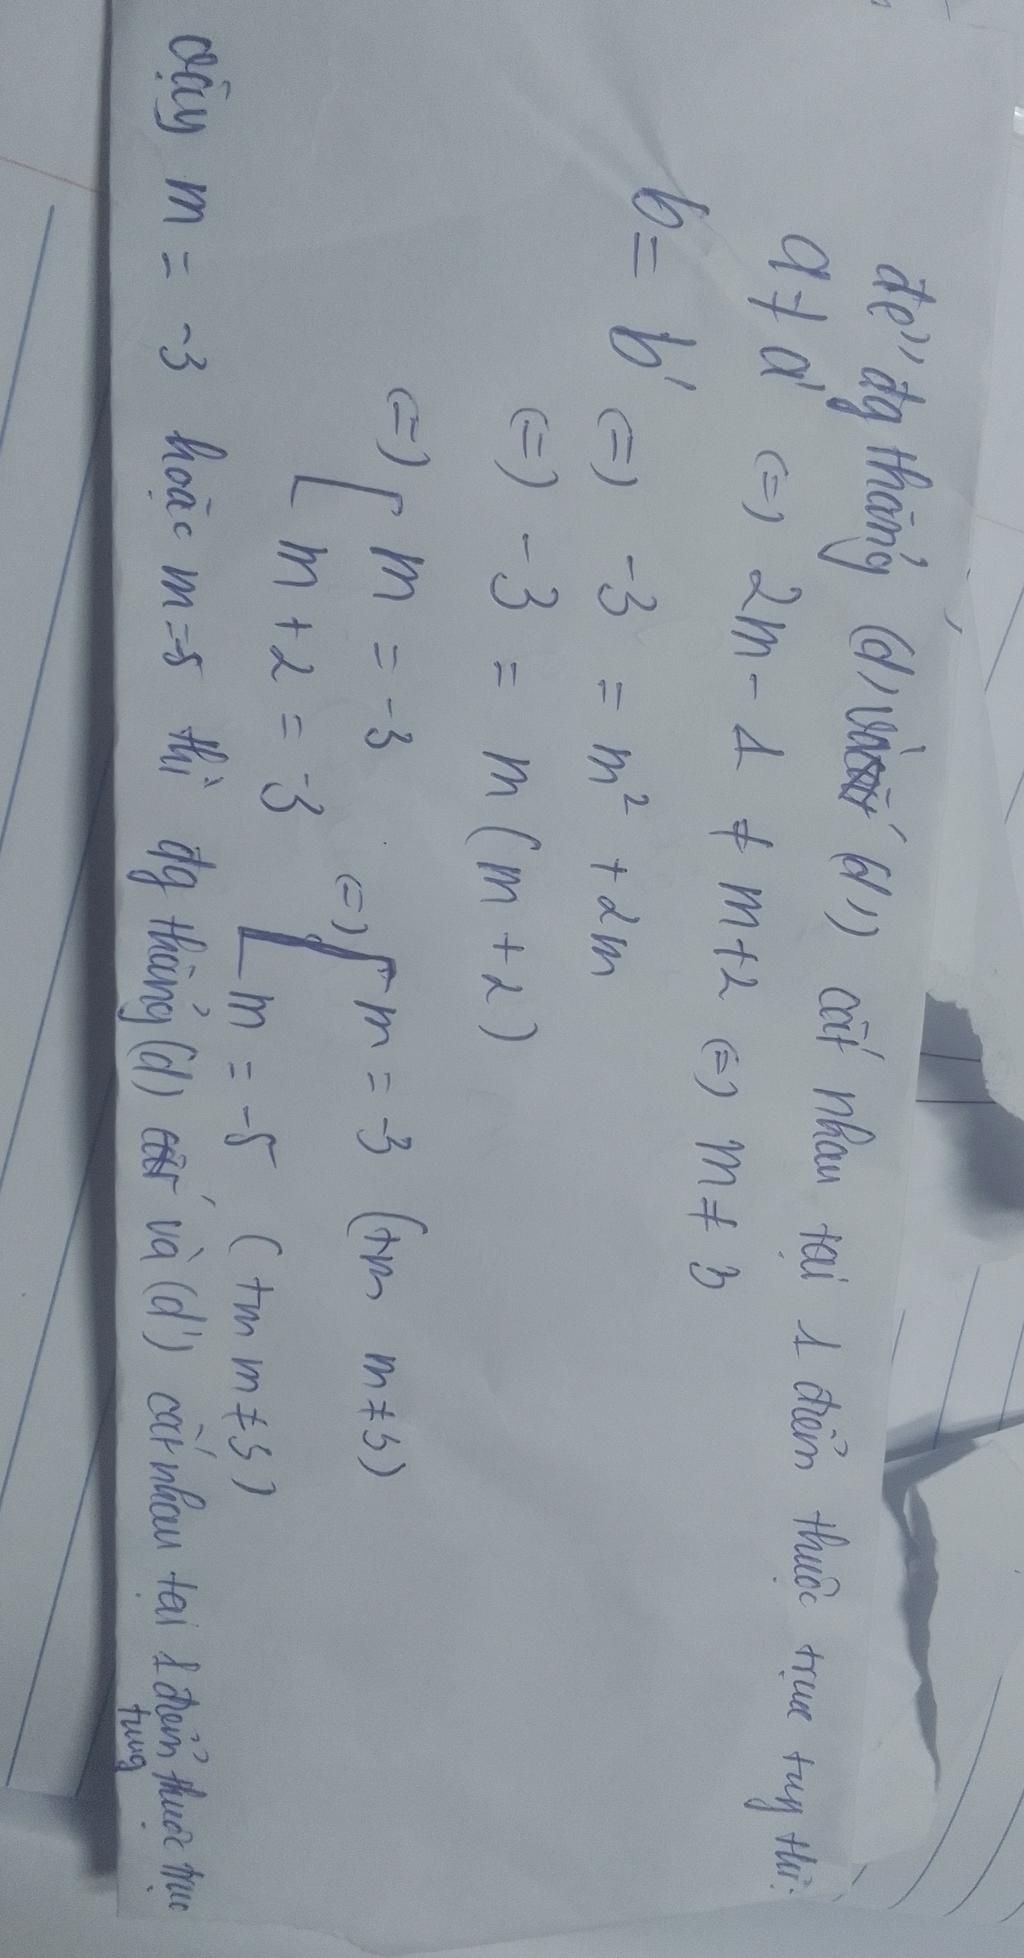 để đg thẳng (d) và (d') cắt nhau tại 1 điểm thuộc trục tug thì:
a ≠ a' (=) 2m - 1 ≠ m+2 (=) m ≠ 3
b = b' (=) -3 = m² + 2m
(=) -3 = m (m + 2)
(=) [ m = -3 (=) [ m = -3 (tm m ≠ 3)
m + 2 = -3 m = -5 (tm m ≠ 3)
Vậy m = -3 hoặc m=-5 thì đg thẳng (d) và (d') cắt nhau tại 1 điểm thuộc trục
tung